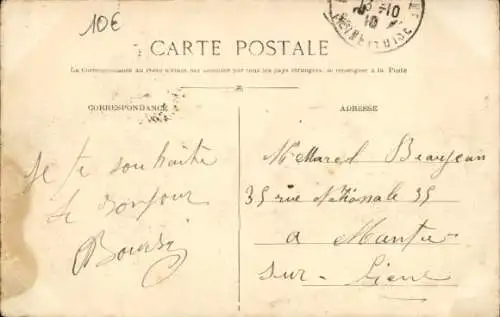 10€
10
CARTE POSTALE
La Correspondance au recto n'étant pas acceptée par tous les pays étrangers, se renseigner à la Poste
CORRESPONDANCE
ADRESSE
Je te souhaite
le bonjour
Mr Marcel Beaujean
35 rue Nationale 35
a Mantes
sur-